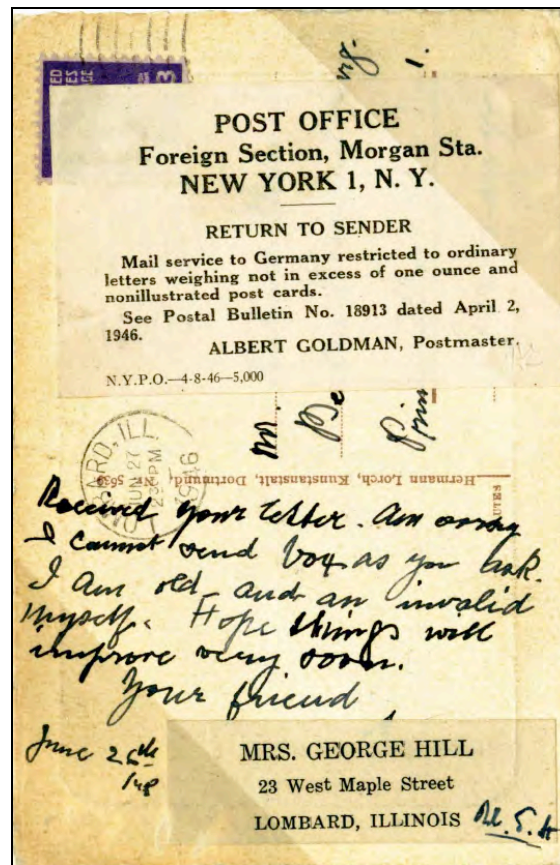 POST OFFICE
Foreign Section, Morgan Sta.
NEW YORK 1, N. Y.
RETURN TO SENDER
Mail service to Germany restricted to ordinary
letters weighing not in excess of one ounce and
nonillustrated post cards.
See Postal Bulletin No. 18913 dated April 2,
1946.
ALBERT GOLDMAN, Postmaster.
N.Y.P.O.—4-8-46—5,000
LOMBARD, ILL.
JUN 27
PM
1946
Hermann Lorch, Kunstanstalt, Dortmund, Nr. 5639
Received your letter. Am sorry
I cannot send box as you ask.
I am old and an invalid
myself. Hope things will
improve very soon.
Your friend
June
MRS. GEORGE HILL
23 West Maple Street
LOMBARD, ILLINOIS U.S.A